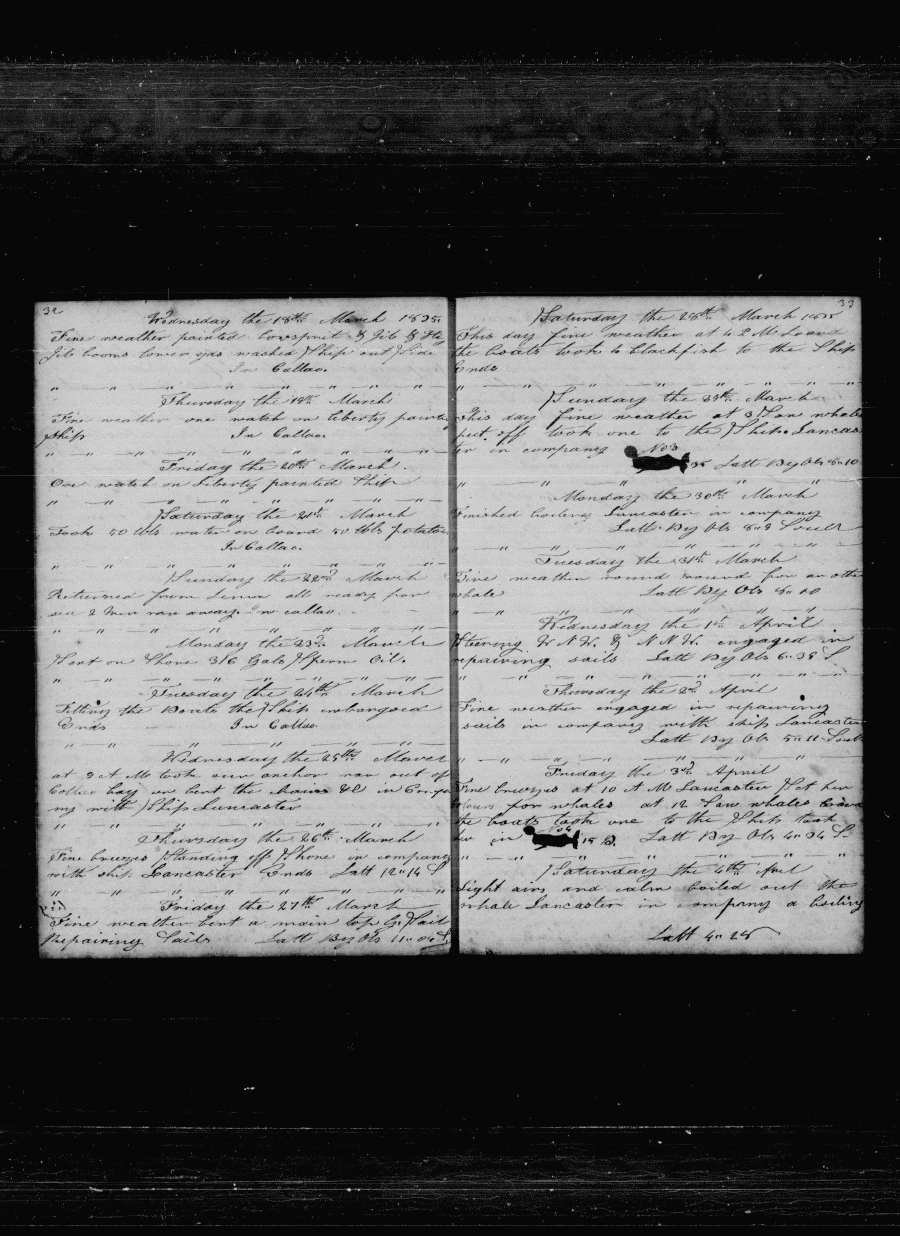 32
Wednesday the 18th March 1835
Fine weather painted bowsprit & Jib & Fla
Jib booms lower yas washed Ship out Side
In Callao
Thursday the 19th March
Fine weather one watch on liberty painting
Ship In Callao
Friday the 20th March
One watch on Liberty painted Ship
Saturday the 21st March
Took 50 bbls water on board 50 bbls Potatoe
In Callao
Sunday the 22nd March
Returned from Lima all ready for
sea 2 Men ran away In callao
Monday the 23d March
Sent on Shore 316 Gals Sperm Oil.
Tuesday the 24th March
Fitting the Boats the Ship embargoed
Ends In Callao
Wednesday the 25th March
at 9 A M took our anchor ran out of
Callao bay on bent the &c in Compa
ny with Ship Lancaster
Thursday the 26th March
Fine breezes Standing off Shore in company
with ship Lancaster Ends Latt 12"14 S
Friday the 27th March
Fine weather bent a main top G. Sail
Repairing Sails Latt By Obs 11"04 S
33
Saturday the 28th March
This day fine weather at 4 P M Lowrd
the boats took 4 blackfish to the Ship
Ends
Sunday the 29th March
This day fine weather at 3 Saw whales
put off took one to the Ship. Lancas
ter in company No 3
35 Latt By Obs 8"10
Monday the 30th March
Finished boiling Lancaster in company
Latt By Obs 8"2 South
Tuesday the 31st March
Fine weather round for an other
whale Latt By Obs 8"00
Wednesday the 1st April
Steering W N W & N N W. engaged in
repairing sails Latt By Obs 6"38 S
Thursday the 2d April
Fine weather engaged in repairing
sails in company with ship Lancaster
Latt By Obs 5"11 South
Friday the 3d April
Fine breezes at 10 A M Lancaster Set her
colours for whales at 12 Saw whales Lowrd
the boats took one to the Ship took
her in No 4 15 B. Latt By Obs 4"34 S
Saturday the 4th April
Light airs and calm boiled out the
whale Lancaster in company a boiling
Latt 4"28